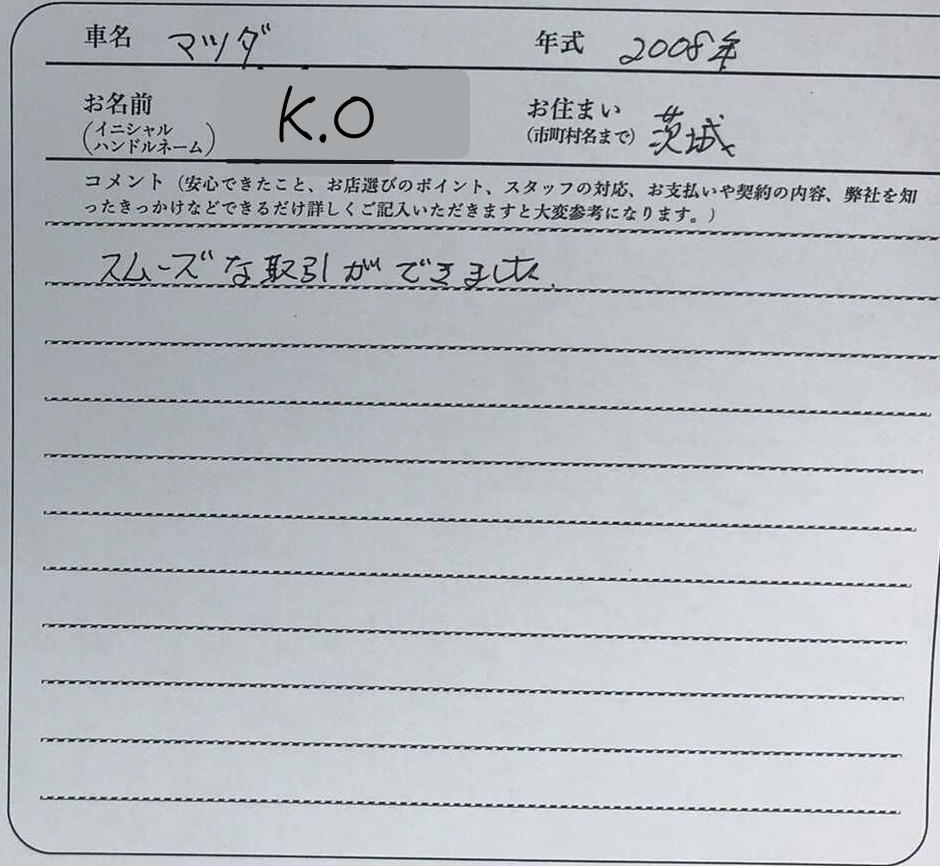 車名 マツダ 年式 2008年
お名前 K.O お住まい
(イニシャル
ハンドルネーム) (市町村名まで) 茨城
コメント（安心できたこと、お店選びのポイント、スタッフの対応、お支払いや契約の内容、弊社を知
ったきっかけなどできるだけ詳しくご記入いただきますと大変参考になります。）
スムーズな取引ができました.